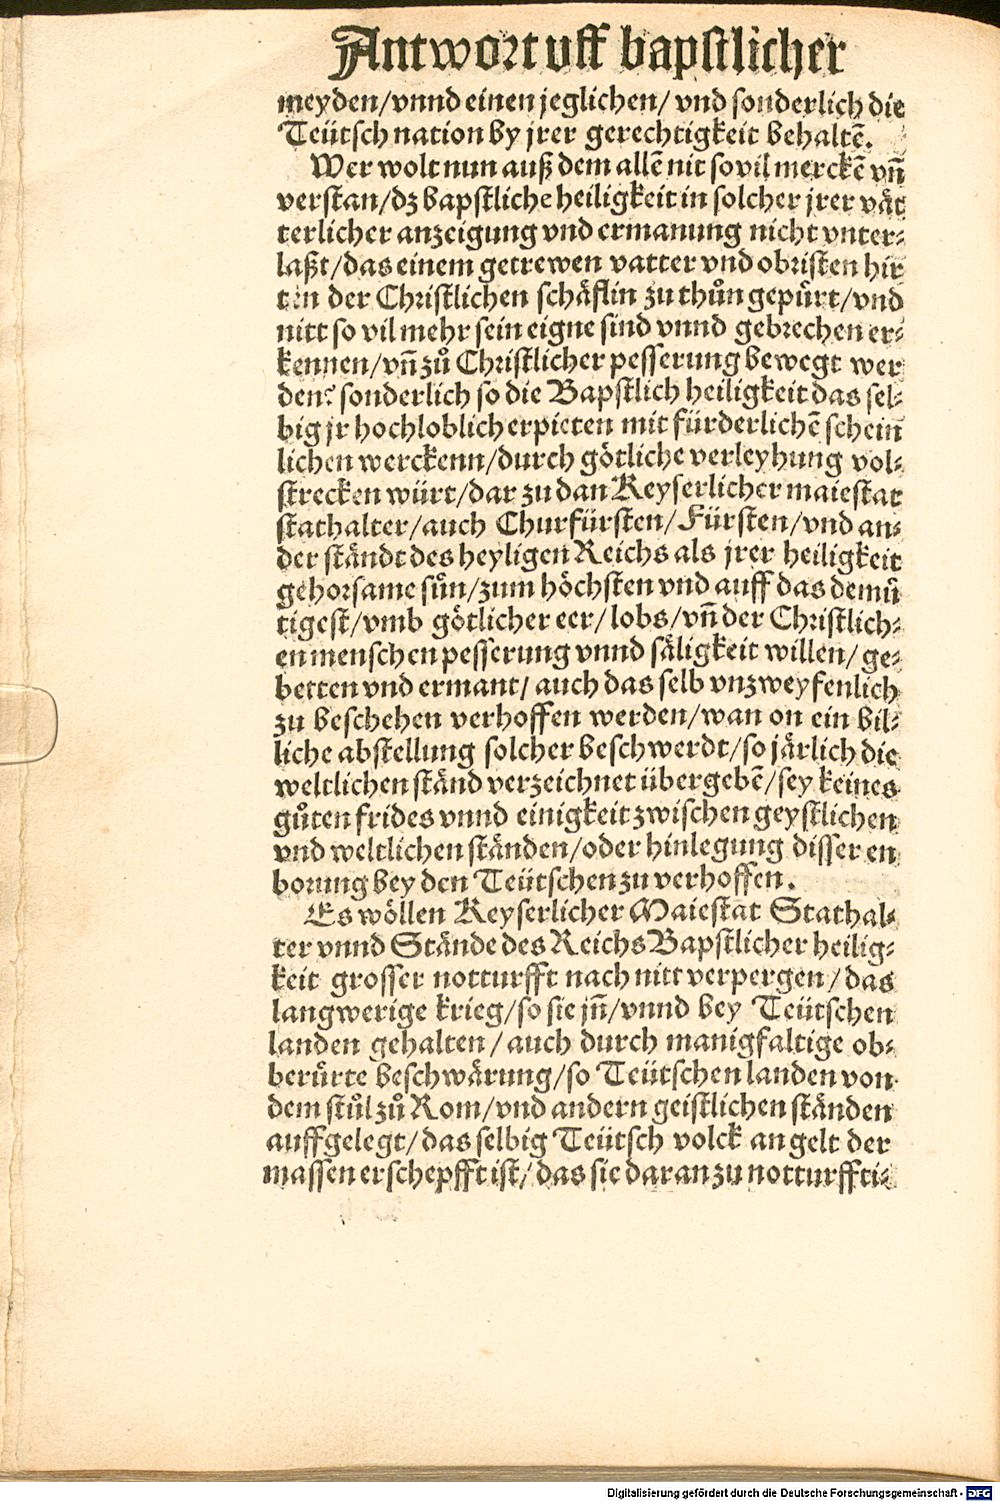 Antwort uff bapstlicher
meyden/vnnd einen jeglichen/ vnd sonderlich die
Teütsch nation by jrer gerechtigkeit behaltē.
Wer wolt nun auß dem allē nit so vil merckē vñ
verstan/dz bapstliche heiligkeit in solcher jrer vät
terlicher anzeigung vnd ermanung nicht vnter⸗
laßt/das einem getrewen vatter vnd obristen hir
ten der Christlichen schäflin zu thůn gepürt/vnd
nitt so vil mehr sein eigne sind vnnd gebrechen er⸗
kennen/vñ zů Christlicher pesserung bewegt wer
den? sonderlich so die Bapstlich heiligkeit das sel⸗
big jr hochloblich erpieten mit fürderlichē schein
lichen werckenn/durch götliche verleyhung vol⸗
strecken würt/dar zu dan Keyserlicher maiestat
stathalter/auch Churfürsten/Fürsten/vnd an⸗
der ständt des heyligen Reichs als jrer heiligkeit
gehorsame sün/zum höchsten vnd auff das demü
tigest/vmb götlicher eer/ lobs/vñ der Christlich⸗
en menschen pesserung vnnd säligkeit willen/ ge⸗
betten vnd ermant/ auch das selb vnzweyfenlich
zu beschehen verhoffen werden/wan on ein bil⸗
liche abstellung solcher beschwerdt/so järlich die
weltlichen ständ verzeichnet übergebē/sey keines
gůten frides vnnd einigkeit zwischen geystlichen
vnd weltlichen ständen/oder hinlegung disser en
borung bey den Teütschen zu verhoffen.
Es wöllen Keyserlicher Maiestat Stathal⸗
ter vnnd Stände des Reichs Bapstlicher heilig⸗
keit grosser notturfft nach nitt verpergen/das
langwerige krieg/so sie jñ/vnnd bey Teütschen
landen gehalten/auch durch manigfaltige ob⸗
berürte beschwärung/so Teütschen landen von
dem stůl zů Rom/vnd andern geistlichen ständen
auffgelegt/das selbig Teütsch volck an gelt der
massen erschepfft ist/das sie daran zu notturffti⸗
Digitalisierung gefördert durch die Deutsche Forschungsgemeinschaft - DFG